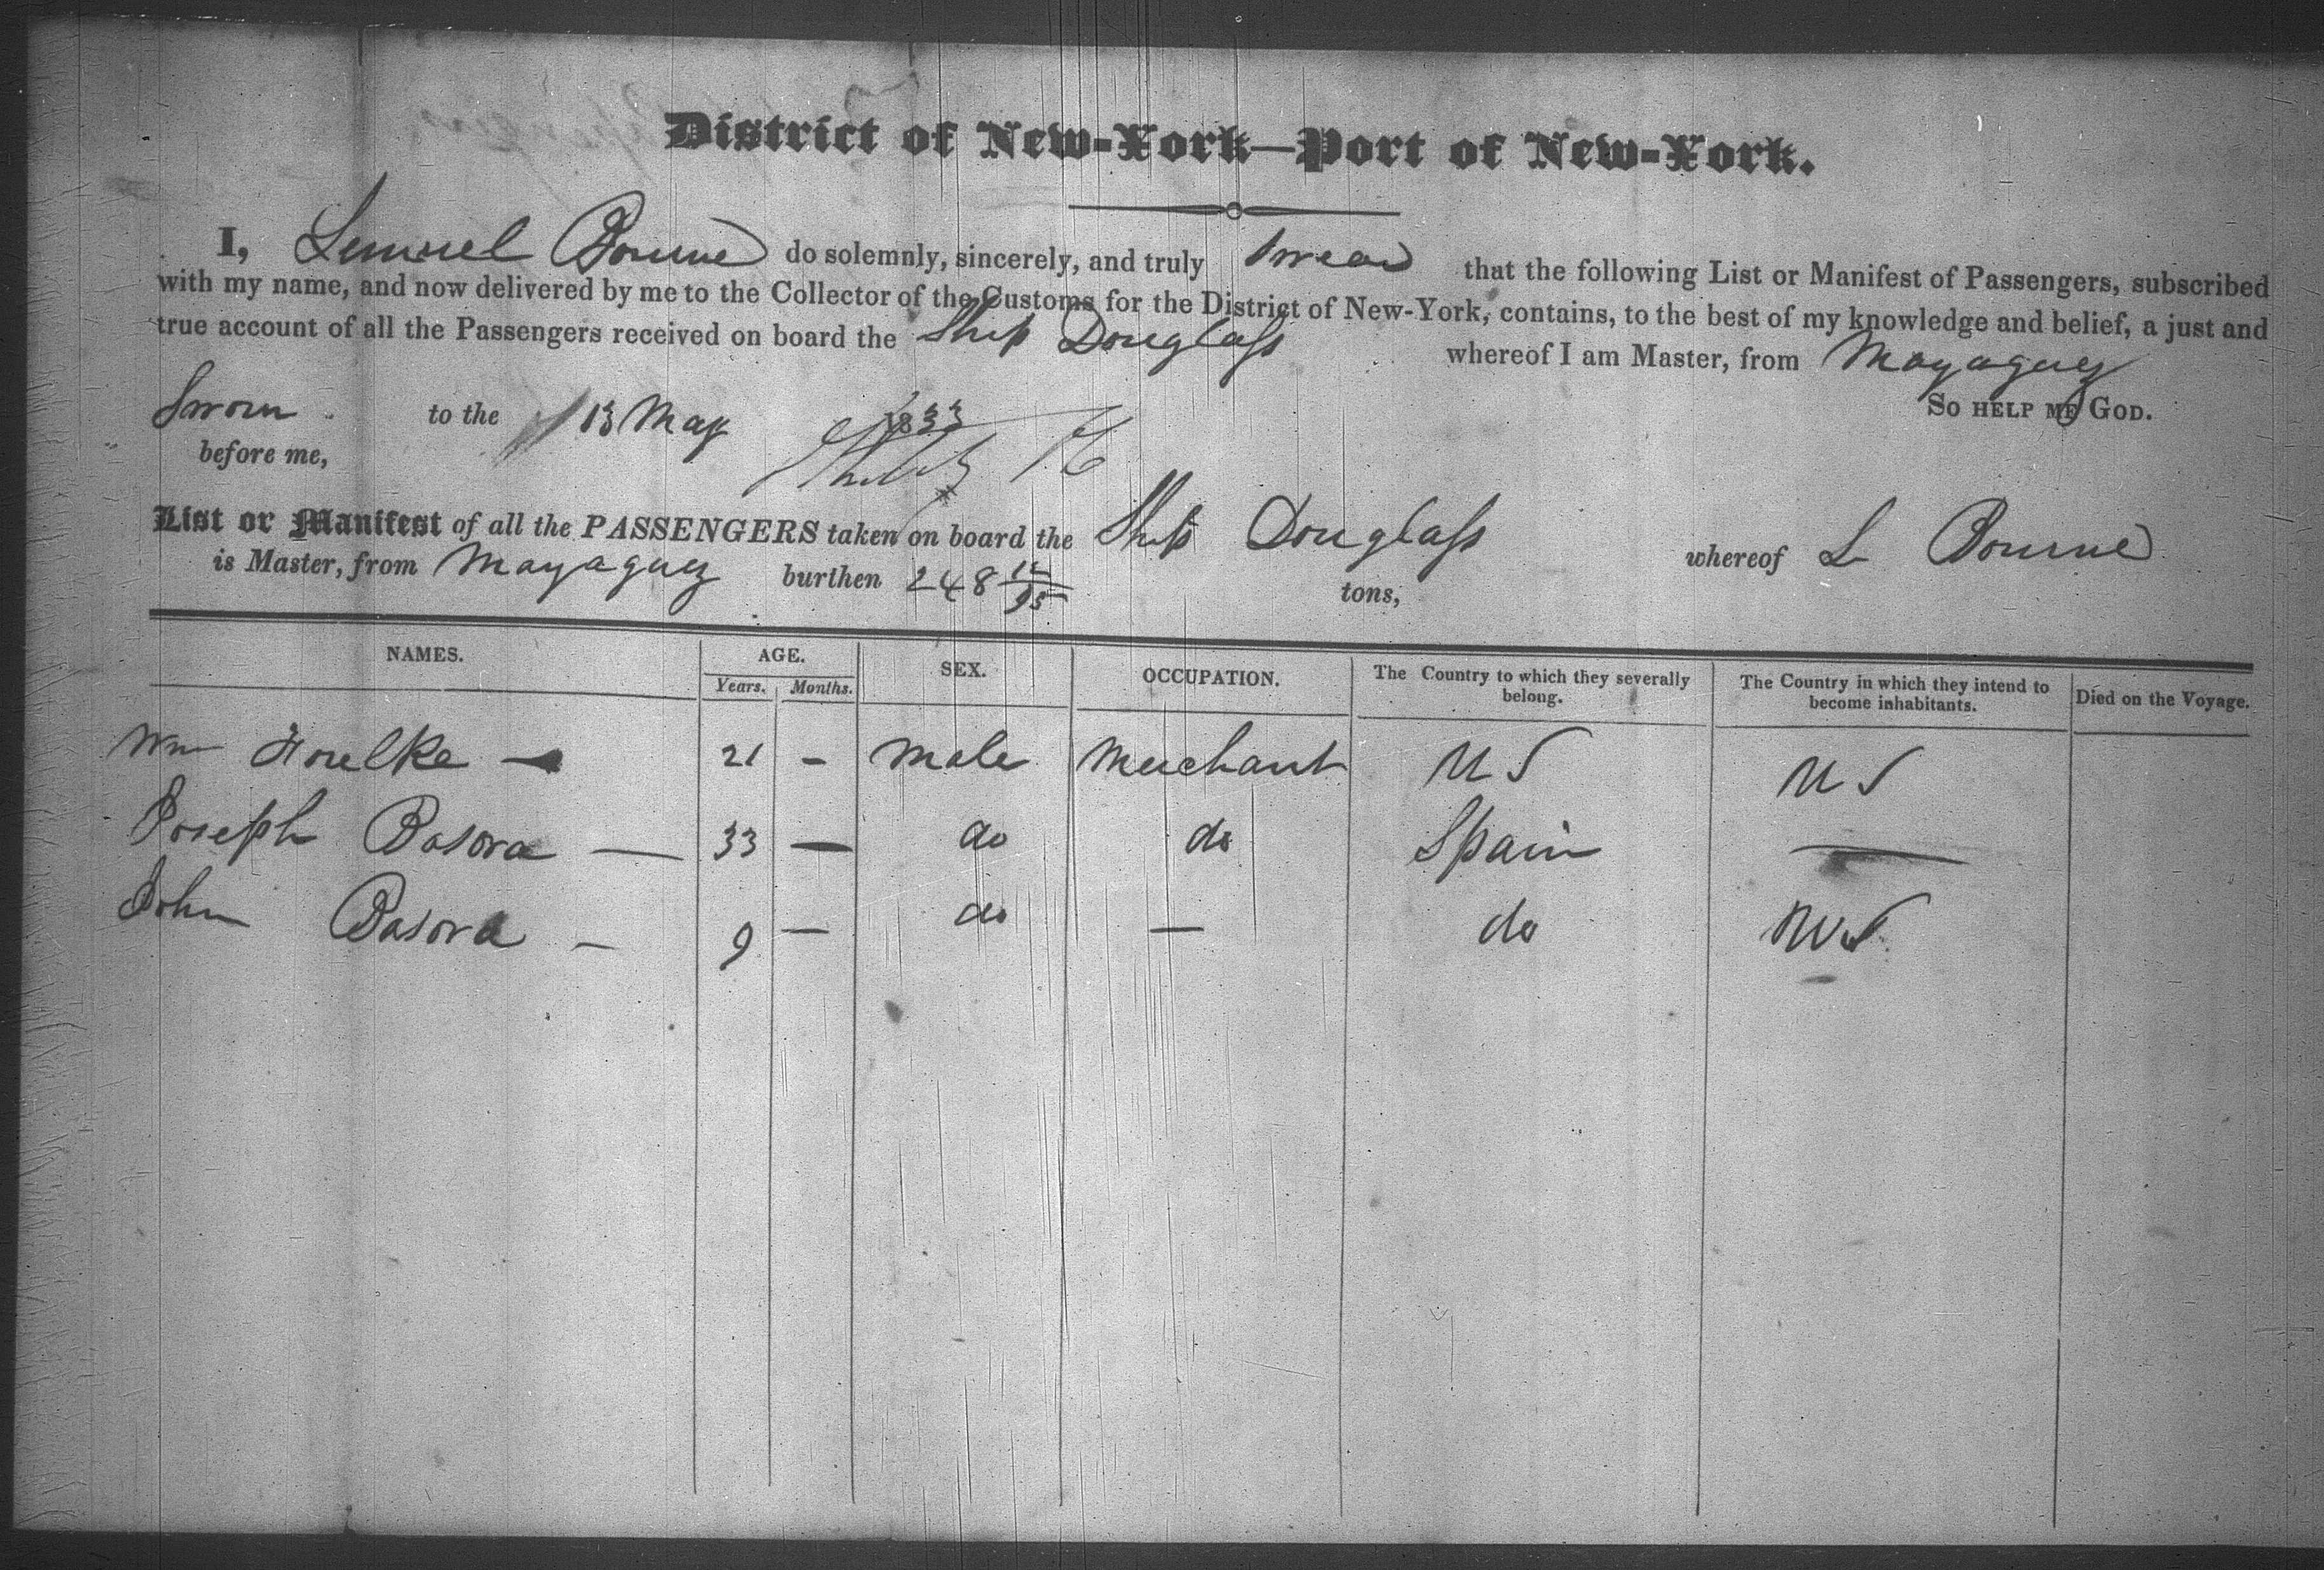 District of New-York—Port of New-York.
I, Lemuel Bourne do solemnly, sincerely, and truly swear that the following List or Manifest of Passengers, subscribed
with my name, and now delivered by me to the Collector of the Customs for the District of New-York, contains, to the best of my knowledge and belief, a just and
true account of all the Passengers received on board the Ship Douglass whereof I am Master, from Mayaguez
Sworn to the 13 May 1833 So help me God.
before me,
List or Manifest of all the PASSENGERS taken on board the Ship Douglass whereof L Bourne
is Master, from Mayaguez burthen 248 12/95 tons,
NAMES. AGE. SEX. OCCUPATION. The Country to which they severally belong. The Country in which they intend to become inhabitants. Died on the Voyage.
Years. Months.
Wm 21 - male Merchant U S U S
Joseph Basora — 33 — do do Spain —
John Basora — 9 — do — do